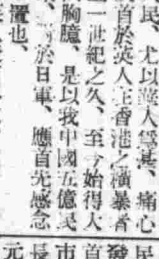 民、尤以華人為甚、痛心
首於英人在香港之橫暴者
一世紀之久、至今始得大
胸臆、是以我中國五億民
於日軍、應首先感念
置也、
民發
長首
市
元